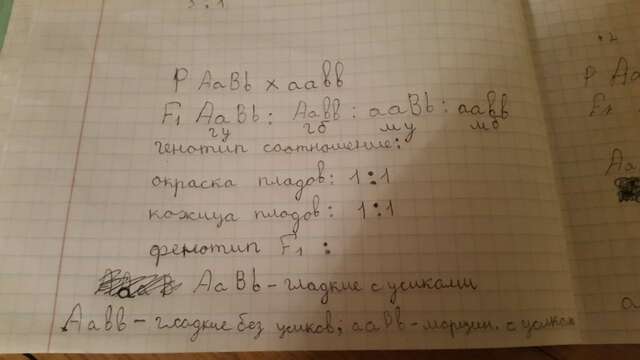 P AaBb × aabb
F₁ AaBb : Aabb : aaBb : aabb
гу гб му мб
генотип соотношение:
окраска пладов: 1:1
кожица пладов: 1:1
фенотип F₁ :
AaBb - гладкие с усиками
Aabb - гладкие без усиков; aaBb - морщин. с усиками
P
F₁